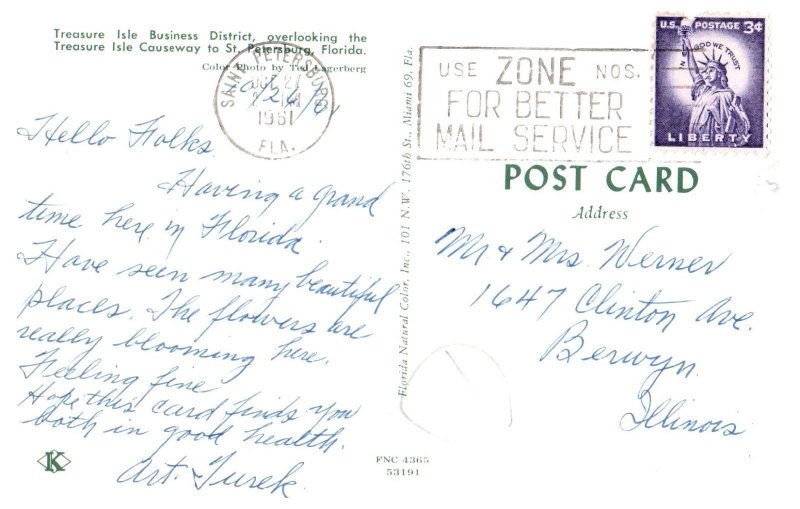 Treasure Isle Business District, overlooking the
Treasure Isle Causeway to St. Petersburg, Florida.
Color Photo by Ted Lagerberg
SAINT PETERSBURG
1961
FLA.
Hello Folks
Having a grand
time here in Florida.
Have seen many beautiful
places. The flowers are
really blooming here.
Feeling fine
Hope this card finds you
both in good health.
Art. Turek.
K
Florida Natural Color, Inc., 101 N.W. 176th St., Miami 69, Fla.
FNC 4365
53191
USE ZONE NOS.
FOR BETTER
MAIL SERVICE
U.S. POSTAGE 3¢
IN GOD WE TRUST
LIBERTY
POST CARD
Address
Mr & Mrs. Werner
1647 Clinton Ave.
Berwyn.
Illinois